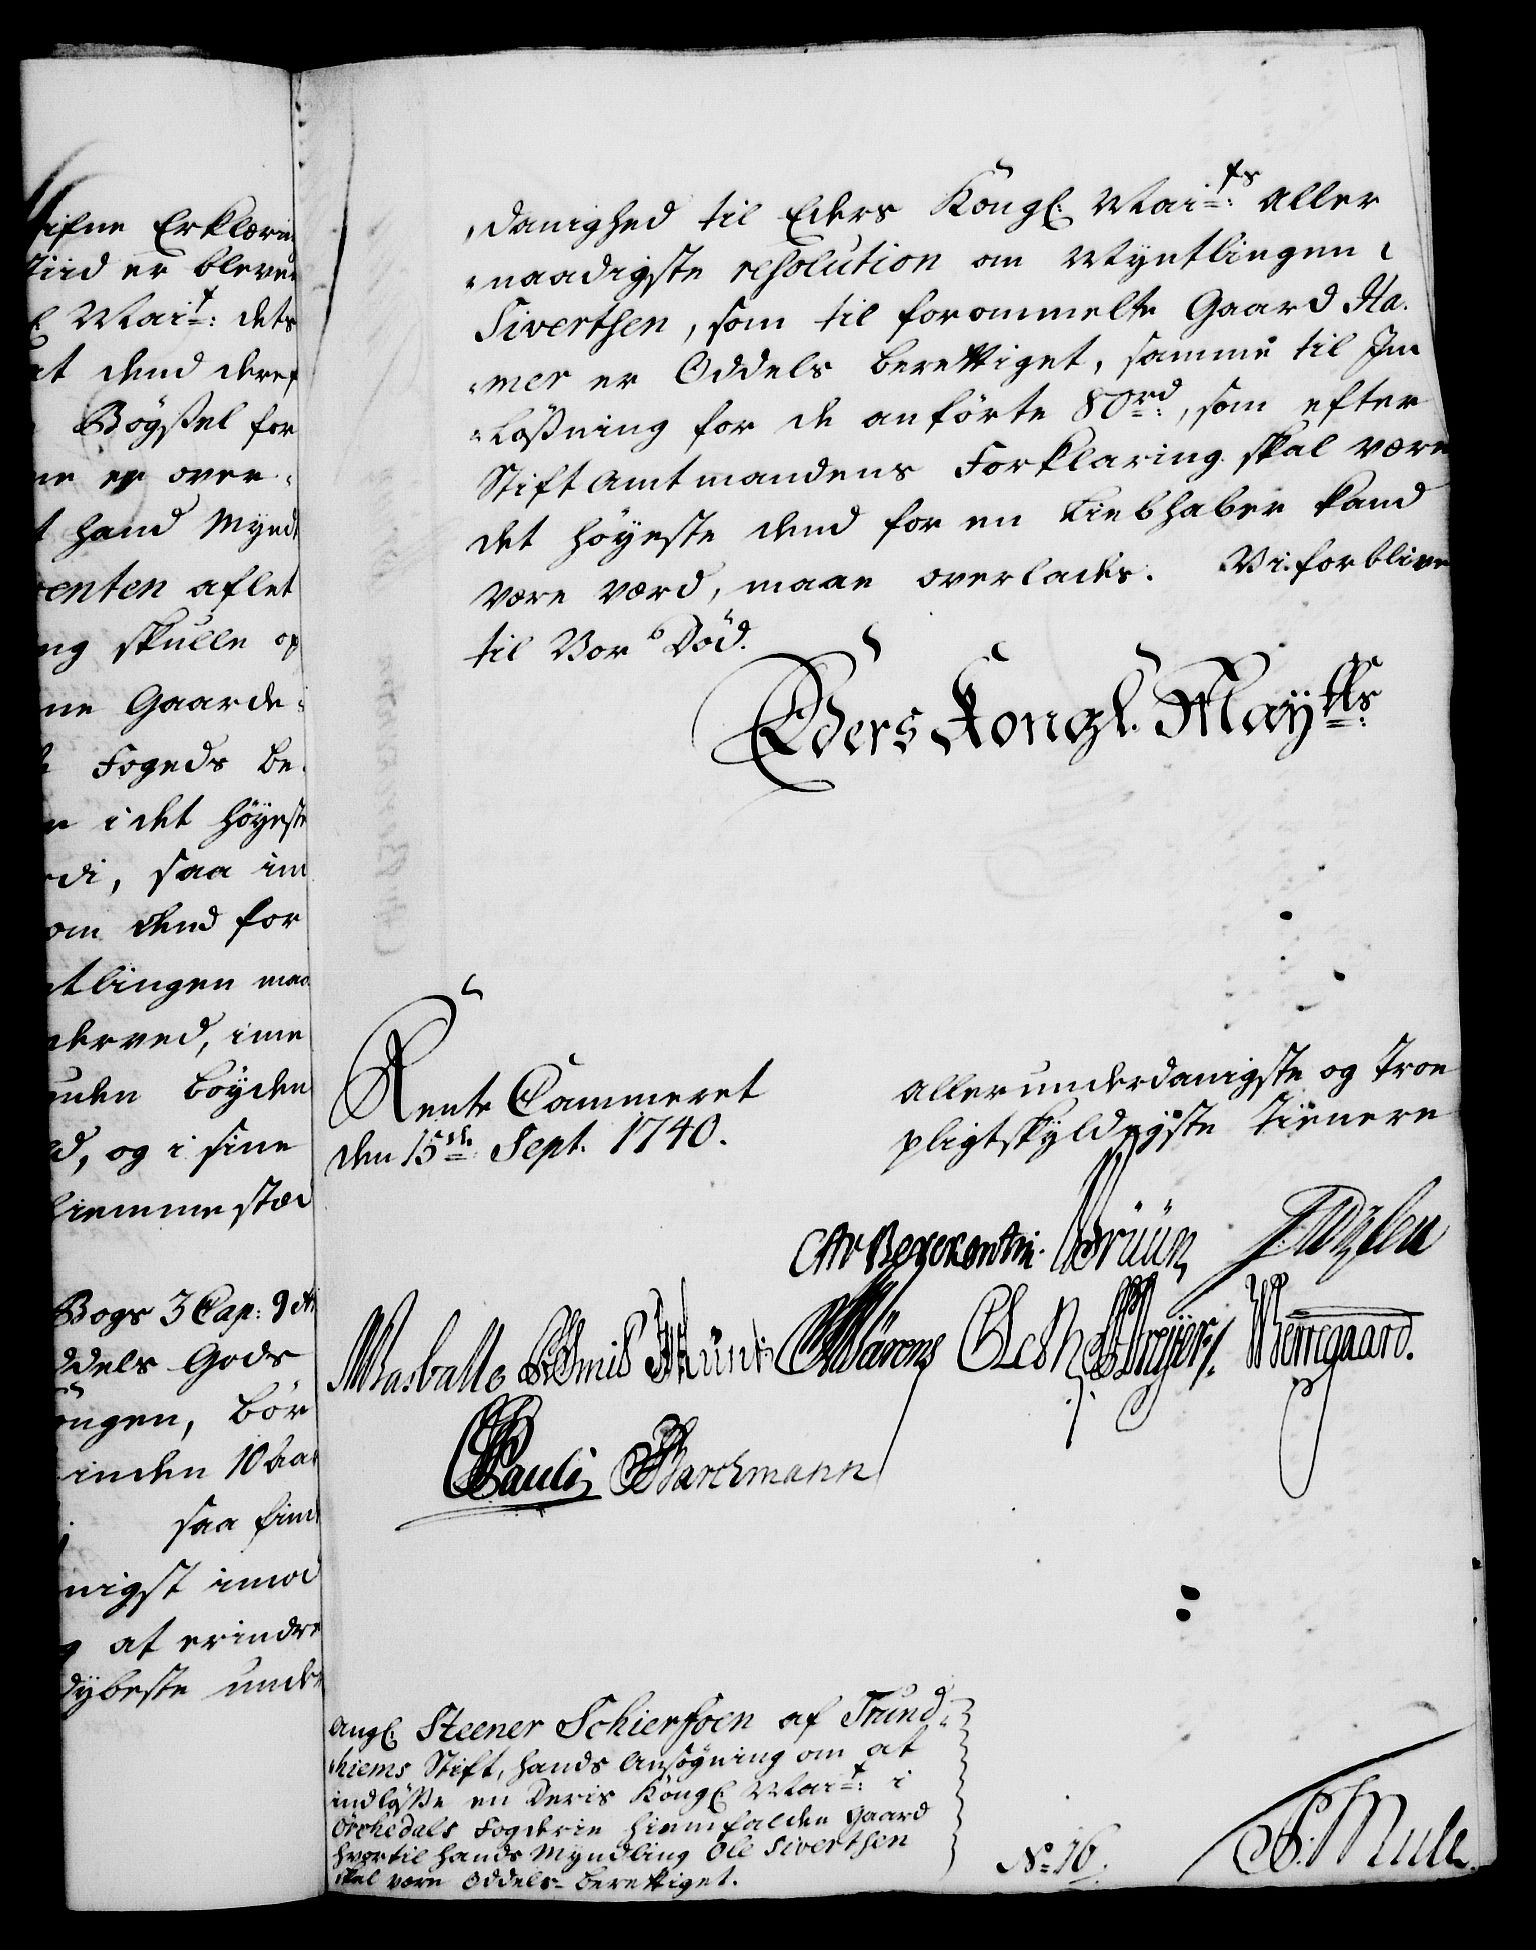 ifne Erklærin
tiid er bleven
Mait: dets
at dend deref
Bögsel for
ne er over-
t hand Mynd
centen aflet
ng skulle op
ne Gaarde-
Fogeds be-
i det höyeste
rdi, saa im
om dend for
ntlingen maa
derved, ime
uden böyden
ed, og i sine
hiemme stæd
Bogs 3 Cap: 9 Ar
ddels Gods
ongen, bör
inden 10 Aar
saa find
nigst imod
og at erindre
dybeste unde
danighed til Eders Kongl: Maits: Aller
naadigste resolution om Myntlingen
Siversen, som til forommelte Gaard Ha-
mer er Oddels berettiget, samme til Ind
lössning for de anförte 80rd:, som efter
Stift Amtmandens Forklaring skal være
det höyeste dend for en Liebhaber kand
være værd, maae overlades. Vi forblive
til Vor Död.
Eders Kongl. Maytts:
Rente Cammeret
den 15de Sept. 1740.
allerunderdanigste og troe
pligtskyldigste tienere
CAv Berckentin. Brüün
Masballe Münt Wærens Dreyer Werregaard.
Pauli Barchmann
Angl: Steener Schiersoen af Trund-
hiems Stift, hands Ansögning om at
indlösse en Deris Kongl: Mait: i
Orchedals Fogderie hiemfalden Gaard
hvortil hands Myndling Ole Siversen
skal være Oddels-berettiget.
No 16.
Mule